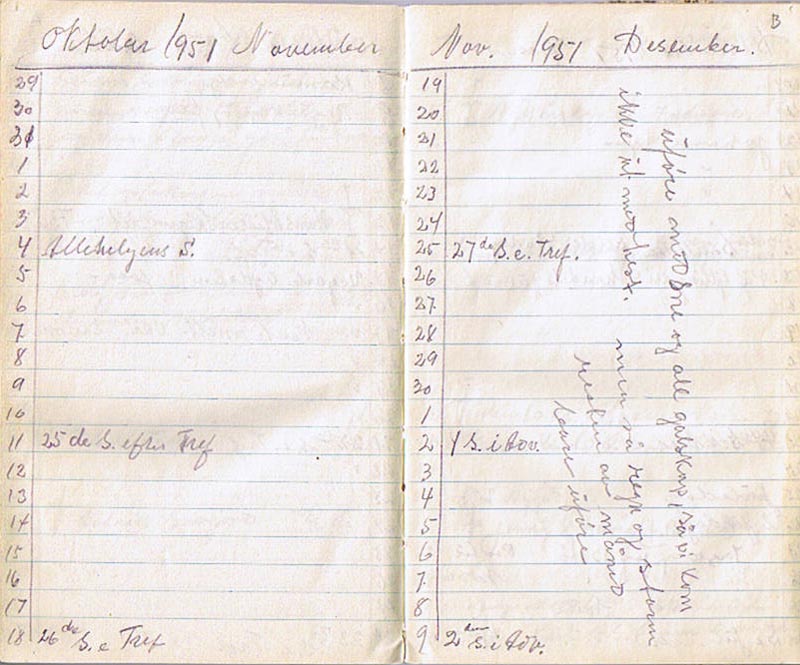 Oktober 1951 November
29
30
31
1
2
3
4 Allehelgens S.
5
6
7
8
9
10
11 25 de S. efter Tref
12
13
14
15
16
17
18 26 de S. e Tref
Nov. 1951 Desember.
19
20
21
22
23
24
25 27 de S. e. Tref.
26
27
28
29
30
1
2 1 S. i Adv.
3
4
5
6
7
8
9 2 den S. i Adv.
uföre med sne og all galskap, så vi kom
ikke ut med hest. men så regn og storm
resten av måned
bare uföre